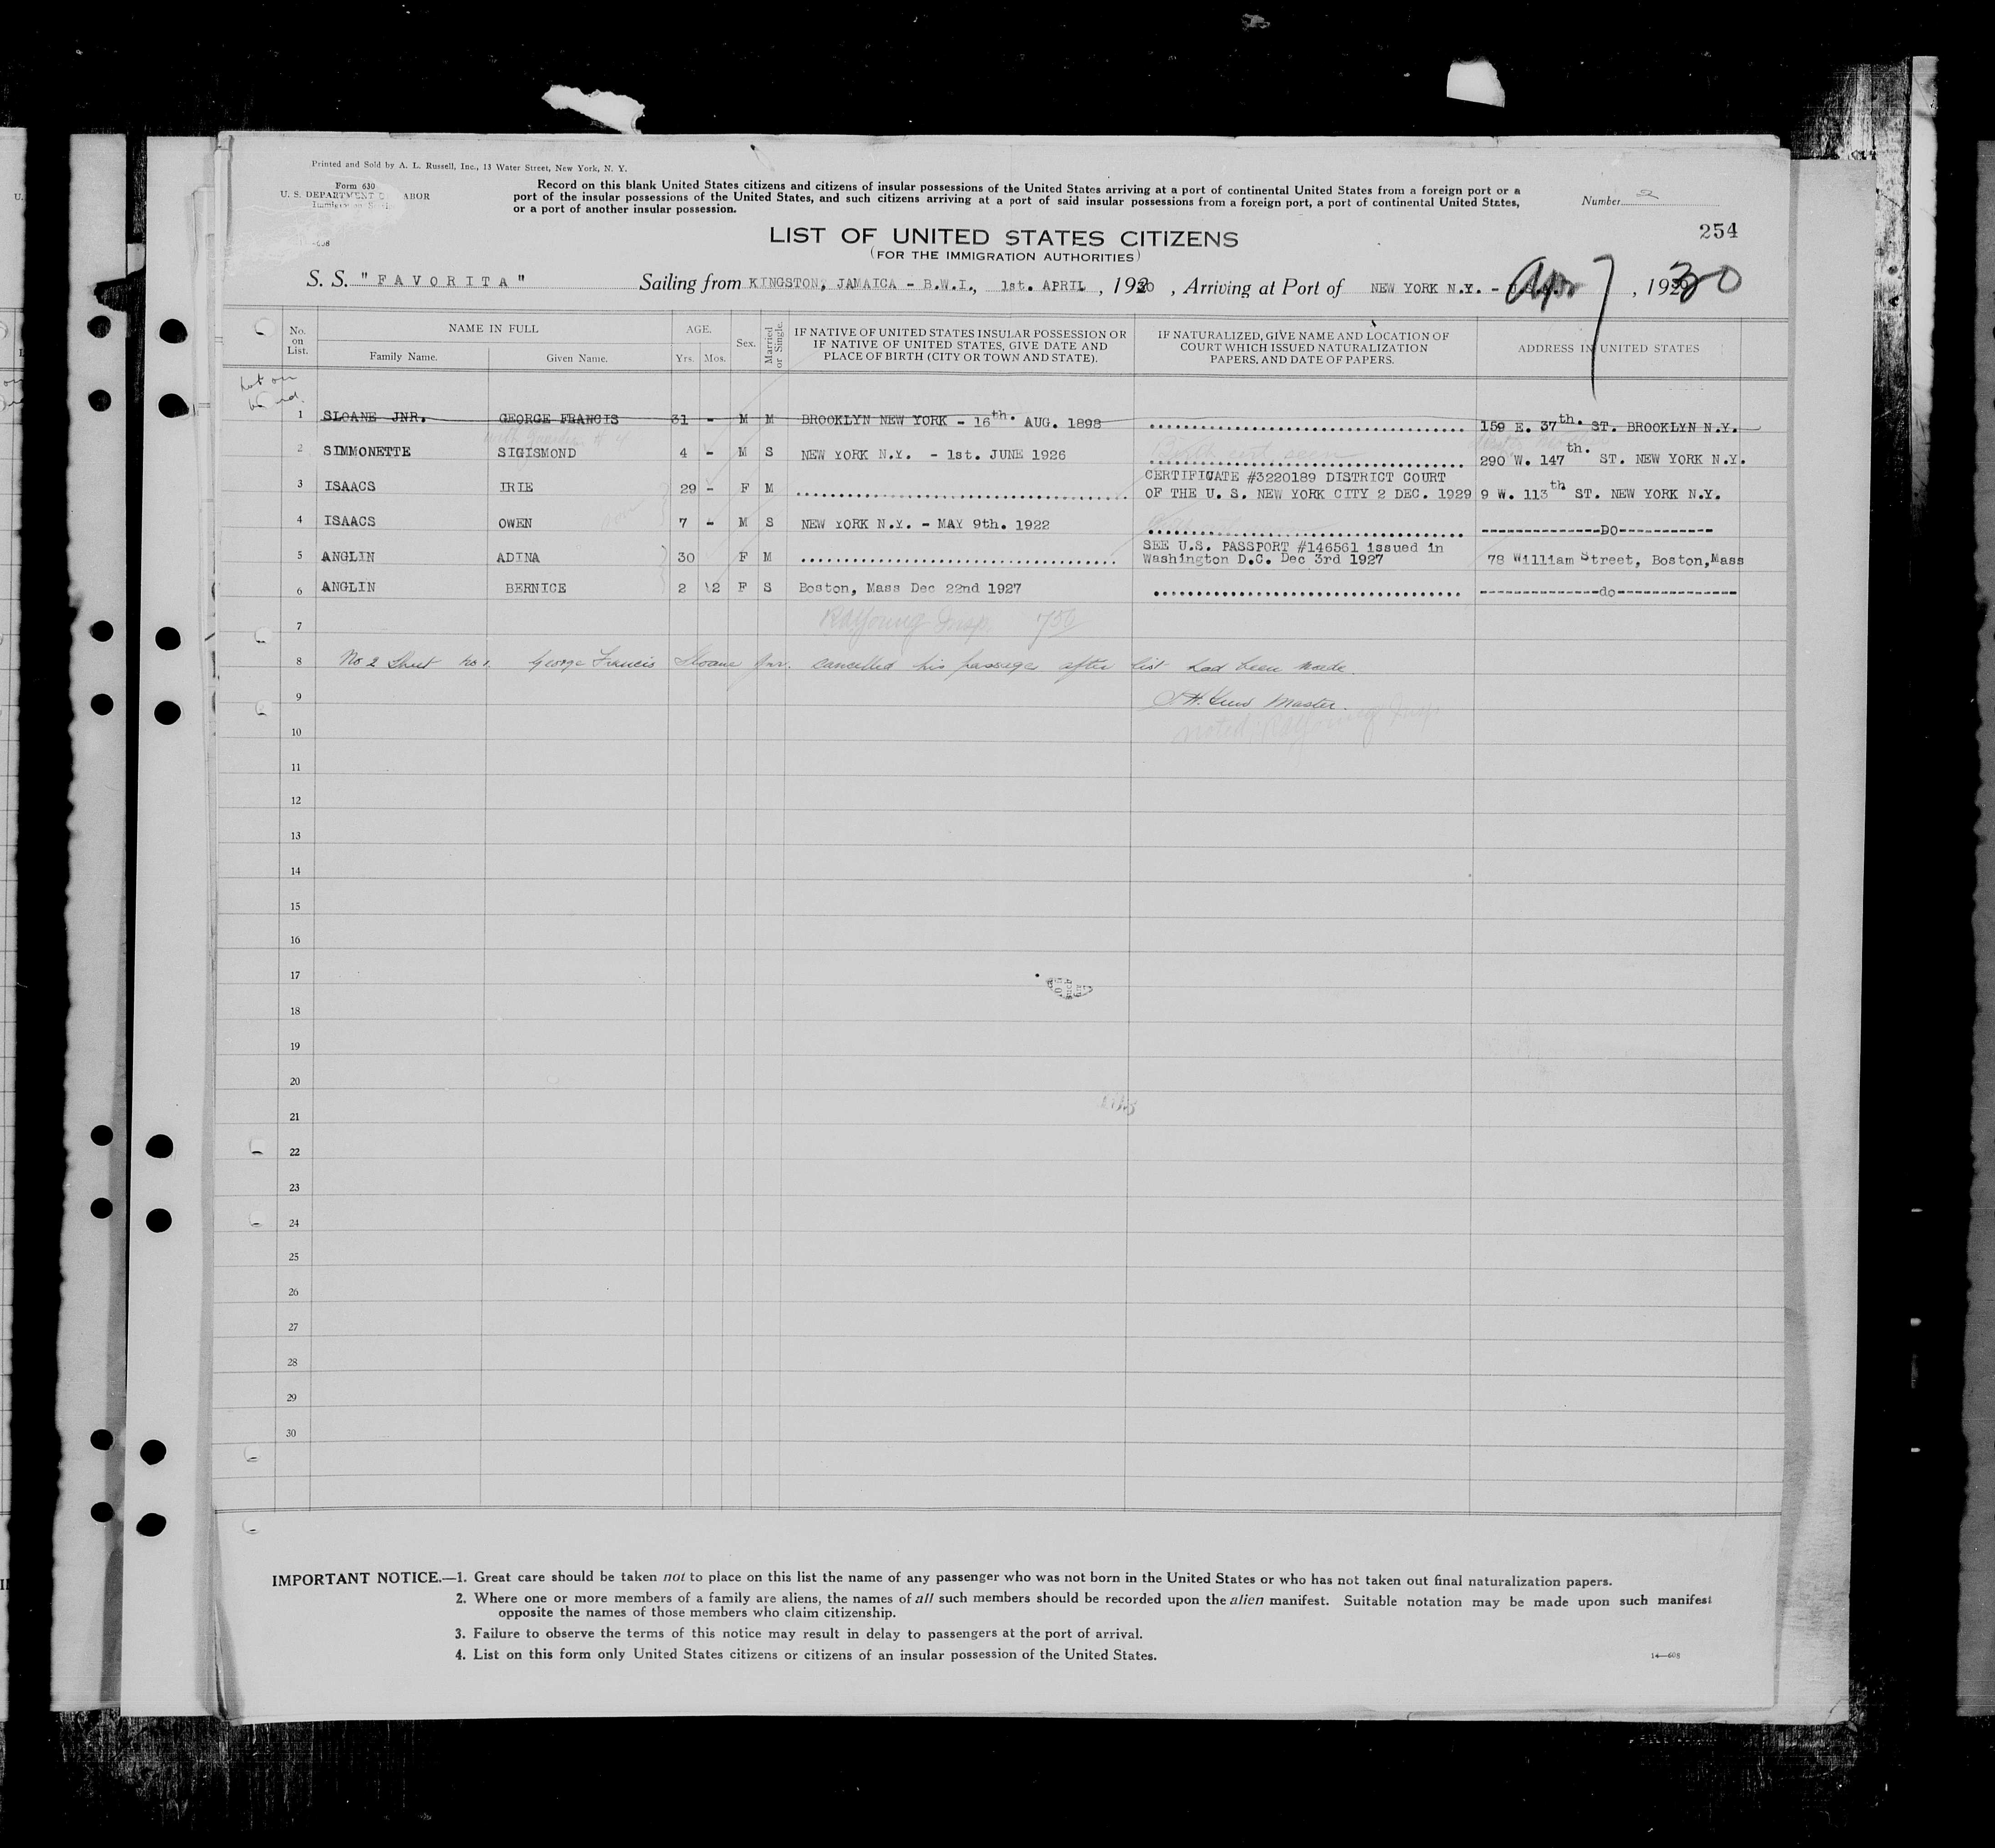 Printed and Sold by A. L. Russell, Inc., 13 Water Street, New York, N. Y.
Form 630
U. S. DEPARTMENT ABOR
Record on this blank United States citizens and citizens of insular possessions of the United States arriving at a port of continental United States from a foreign port or a
port of the insular possessions of the United States, and such citizens arriving at a port of said insular possessions from a foreign port, a port of continental United States,
or a port of another insular possession.
Number 2
254
LIST OF UNITED STATES CITIZENS
(FOR THE IMMIGRATION AUTHORITIES)
S. S. "FAVORITA" Sailing from KINGSTON, JAMAICA - B.W.I., 1st. APRIL, 1930, Arriving at Port of NEW YORK N.Y. - Apr 7, 1930
No. on List. NAME IN FULL Family Name. Given Name. AGE. Yrs. Mos. Sex. Married or Single. IF NATIVE OF UNITED STATES INSULAR POSSESSION OR IF NATIVE OF UNITED STATES, GIVE DATE AND PLACE OF BIRTH (CITY OR TOWN AND STATE). IF NATURALIZED, GIVE NAME AND LOCATION OF COURT WHICH ISSUED NATURALIZATION PAPERS, AND DATE OF PAPERS. ADDRESS IN UNITED STATES
Not on
1 SLOANE JNR. GEORGE FRANCIS 31 - M M BROOKLYN NEW YORK - 16th. AUG. 1898 159 E. 37th. ST. BROOKLYN N.Y.
2 SIMMONETTE SIGISMOND 4 - M S NEW YORK N.Y. - 1st. JUNE 1926 Birth cert seen 290 W. 147th. ST. NEW YORK N.Y.
3 ISAACS IRIE 29 - F M CERTIFICATE #3220189 DISTRICT COURT
OF THE U. S. NEW YORK CITY 2 DEC. 1929 9 W. 113th ST. NEW YORK N.Y.
4 ISAACS OWEN 7 - M S NEW YORK N.Y. - MAY 9th. 1922 --------------DO-----------
5 ANGLIN ADINA 30 F M SEE U.S. PASSPORT #146561 issued in
Washington D.C. Dec 3rd 1927 78 William Street, Boston,Mass
6 ANGLIN BERNICE 2 2 F S Boston, Mass Dec 22nd 1927 --------------do--------------
7 RAYoung Insp. 750
8 No 2 Sheet No 1. George Francis Sloane Jnr. cancelled his passage after list had been made.
9 Master.
10 noted RAYoung Insp
11
12
13
14
15
16
17
18
19
20
21
22
23
24
25
26
27
28
29
30
IMPORTANT NOTICE.—1. Great care should be taken not to place on this list the name of any passenger who was not born in the United States or who has not taken out final naturalization papers.
2. Where one or more members of a family are aliens, the names of all such members should be recorded upon the alien manifest. Suitable notation may be made upon such manifest
opposite the names of those members who claim citizenship.
3. Failure to observe the terms of this notice may result in delay to passengers at the port of arrival.
4. List on this form only United States citizens or citizens of an insular possession of the United States.
14—608